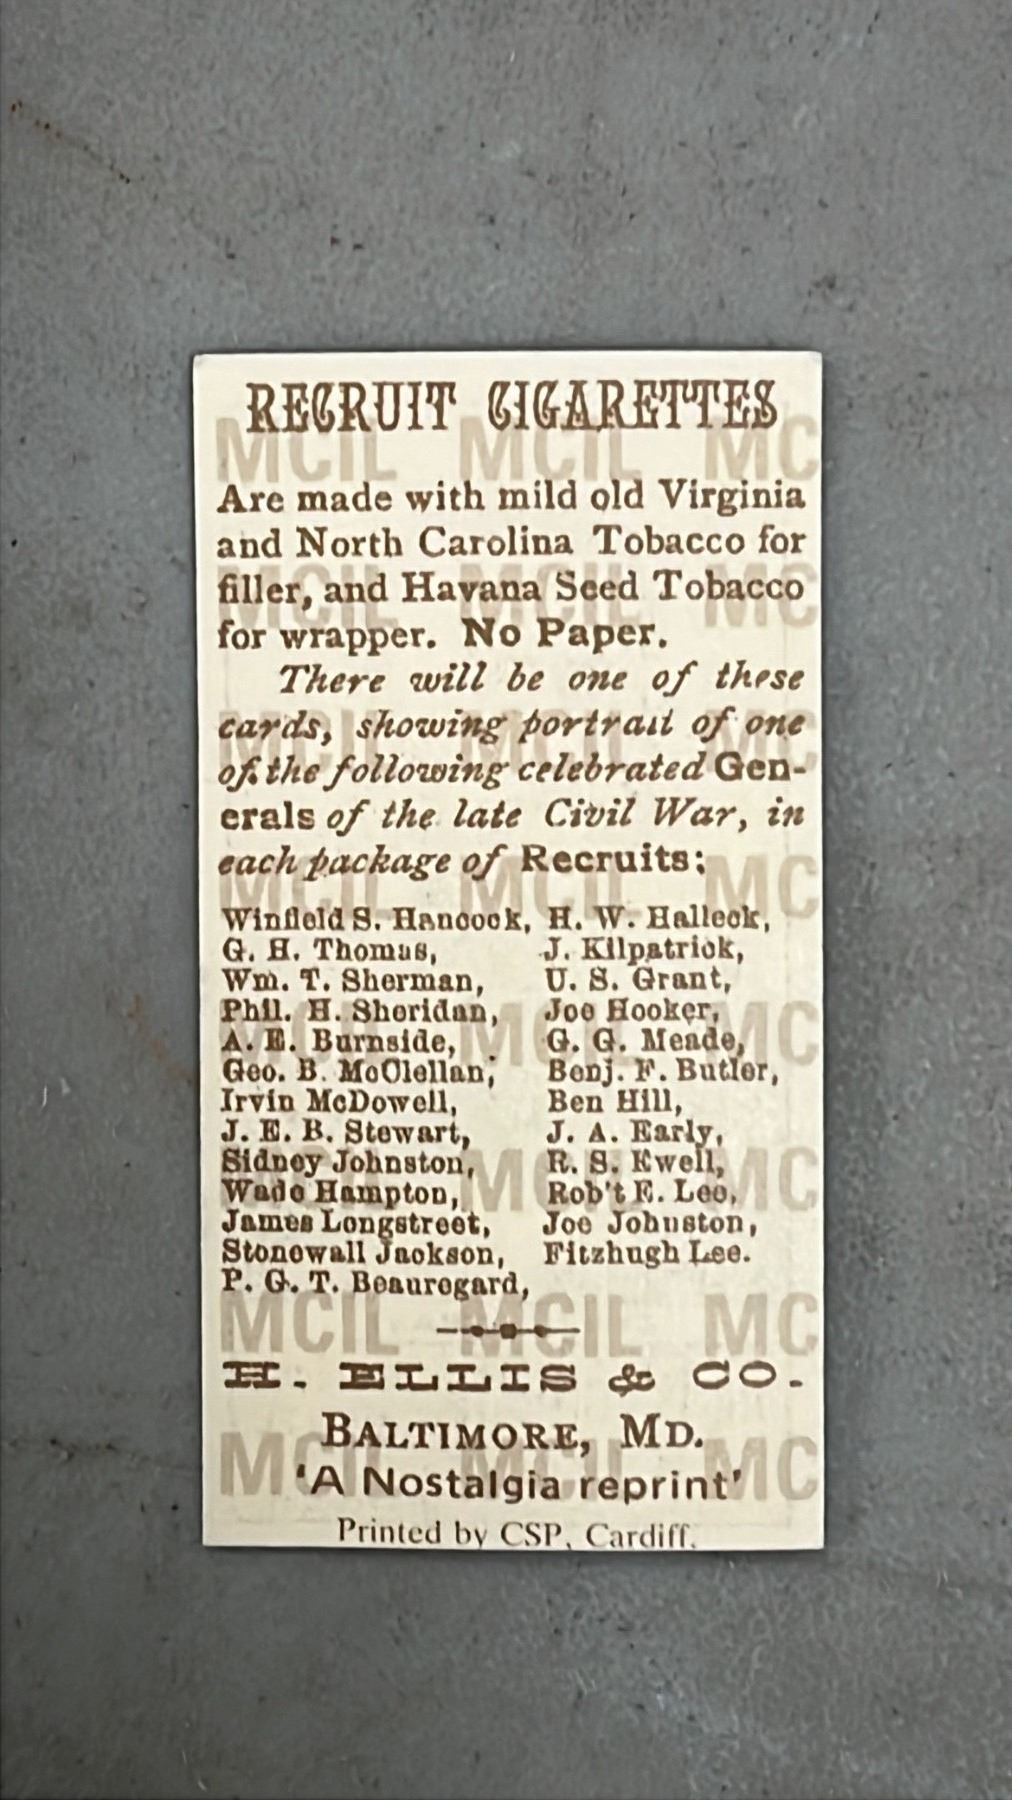 RECRUIT CIGARETTES
Are made with mild old Virginia
and North Carolina Tobacco for
filler, and Havana Seed Tobacco
for wrapper. No Paper.
There will be one of these
cards, showing portrait of one
of the following celebrated Gen-
erals of the late Civil War, in
each package of Recruits:
Winfield S. Hancock, H. W. Halleck,
G. H. Thomas, J. Kilpatrick,
Wm. T. Sherman, U. S. Grant,
Phil. H. Sheridan, Joe Hooker,
A. E. Burnside, G. G. Meade,
Geo. B. McClellan, Benj. F. Butler,
Irvin McDowell, Ben Hill,
J. E. B. Stewart, J. A. Early,
Sidney Johnston, R. S. Ewell,
Wade Hampton, Rob't E. Lee,
James Longstreet, Joe Johnston,
Stonewall Jackson, Fitzhugh Lee.
P. G. T. Beauregard,
H. ELLIS & CO.
BALTIMORE, MD.
'A Nostalgia reprint'
Printed by CSP, Cardiff.
MCIL MCIL MC
MCIL MCIL MC
MCIL MCIL MC
MCIL MCIL MC
MCIL MCIL MC
MCIL MCIL MC
MCIL MCIL MC
MCIL MCIL MC